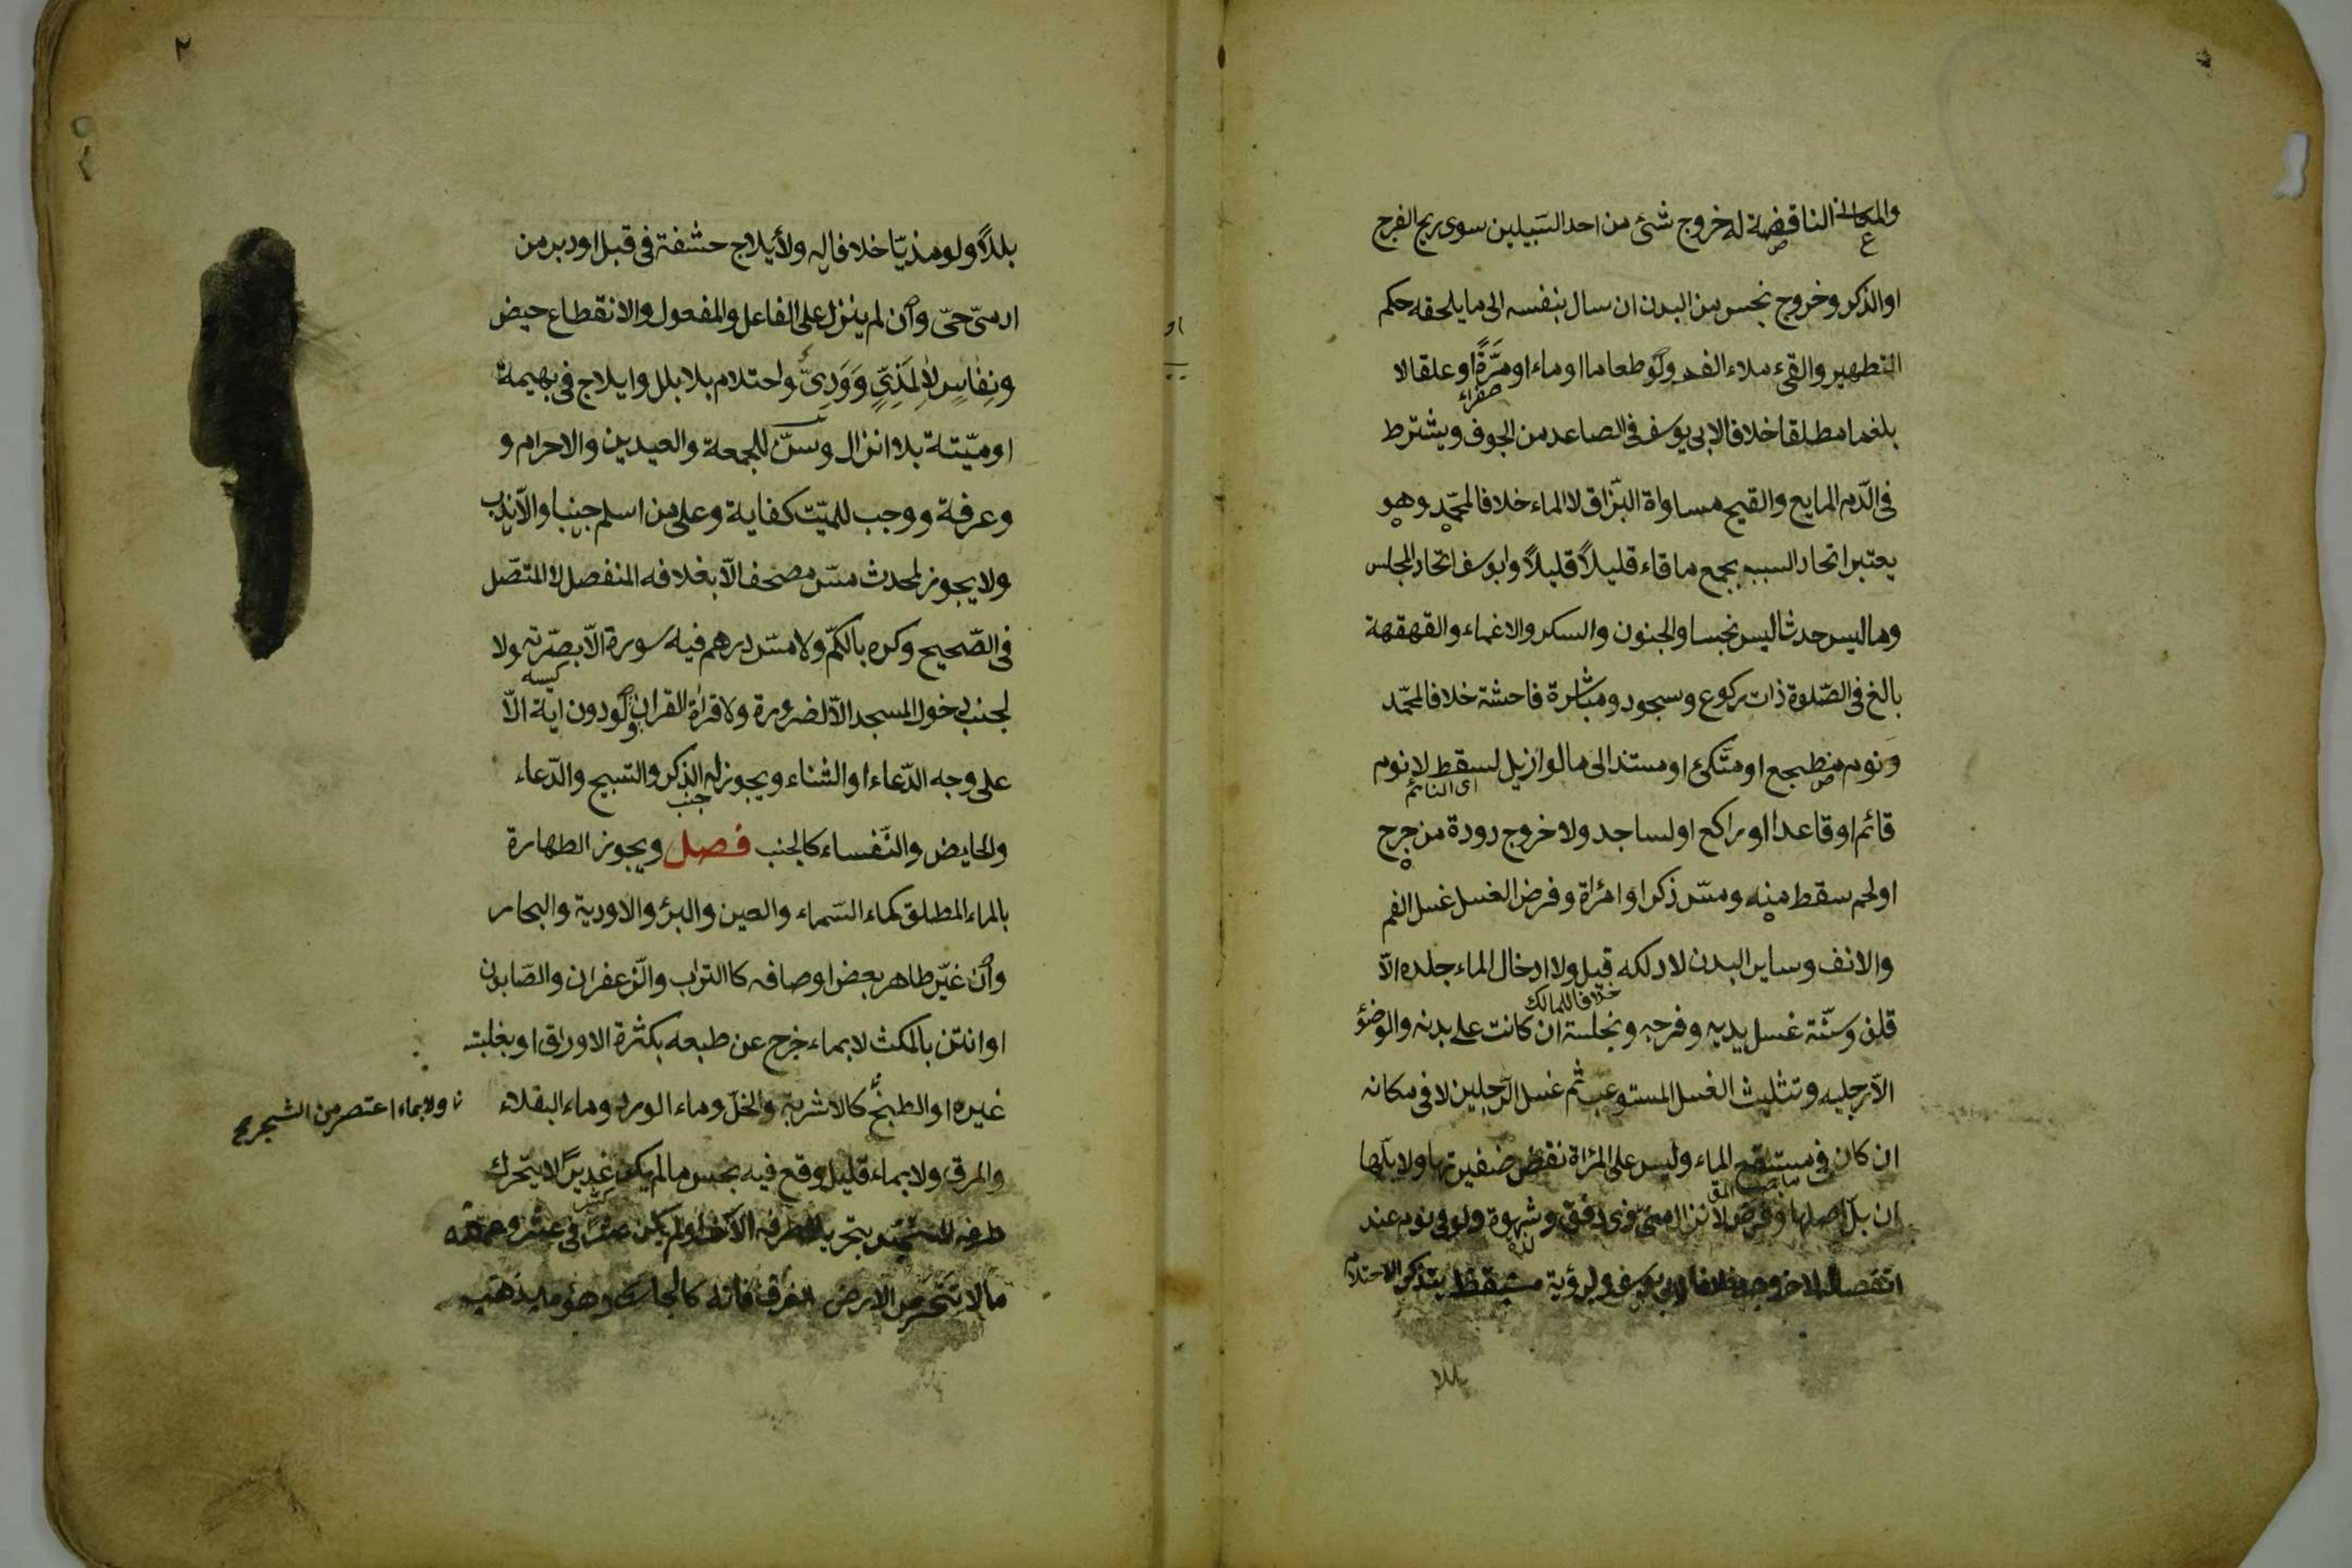 والمعانى الناقضة له خروج شئ من احد السّبيلين سوى ريح الفرج
او الذكر وخروج نجس من البدن ان سال بنفسه الى ما يلحقه حكم
التطهير والقئ ملاء الفم ولو طعاما او ماء او مَرَّةً او علقا لا
صفراء
بلغما مطلقا خلافا لابى يوسف فى الصاعد من الجوف ويشترط
فى الدّم المايع والقيح مساواة البّزاق لا الماء خلافا لمحمّد وهو
يعتبر اتحاد السبب بجمع ما قاء قليلاً قليلاً وابو يوسف اتحاد المجلس
وما ليس حدثا ليس نجسا والجنون والسكر والاغماء والقهقهة
بالغ فى الصّلوة ذات ركوع وسجود ومباشرة فاحشة خلافا لمحمّد
ونوم منطبجع او متّكئ او مستند الى ما لو ازيل لسقط لا نوم
اى النائم
قائم او قاعدا او راكع او لساجد ولا خروج دودة من جرح
او لحم سقط منه ومسّ ذكر او امرأة وفرض الغسل غسل الفم
والانف وساير البدن لا دلكه قيل ولا ادخال الماء جلده الاّ
خلافا للمالك
قلف وسنّنة غسل يديه وفرجه ونجاسة ان كانت على بدنه والوضؤ
الاّ رجليه وتثليث الغسل المستوعب ثم غسل الرّجلين لا فى مكانه
ان كان فى مستنقع الماء وليس على المرأة نقض ضفيرتها ولا بلّها
ان بلّ اصلها وفرض لانزال منىّ ذى دفق وشهوة ولو فى نوم عند
انفصاله لا خروجه خلافا لابى يوسف ولرؤية مستيقظ يتذكر الاحتلام
بللا
٢
بللاً ولو مذيّا خلافا له ولأيلاج حشفة فى قبل او دبر من
ادمىّ حىّ وان لم ينزل على الفاعل والمفعول والانقطاع حيض
ونِفَاسٍ لاَ لِمَذِىٍّ وَوَدِىٍّ واحتلام بلا بلل وايلاج فى بهيمة
او ميّتة بلا انزال وسنّ للجمعة والعيدين والاحرام و
وعرفة ووجب للميّت كفاية وعلى من اسلم جنبا والاّ ندب
ولا يجوز لمحدث مسّ مصحف الاّ بغلافه المنفصل لا المتّصل
فى الصّحيح وكره بالكمّ ولا مسّ درهم فيه سورة الاّ بصرّته ولا
كيسه
لجنب دخول المسجد الاّ لضرورة ولا قراة القران ولو دون اية الاّ
على وجه الدّعاء او الثناء ويجوز له الذكر والتسبيح والدّعاء
جنب
والحايض والنّفساء كالجنب فصل ويجوز الطهارة
بالماء المطلق كماء السّماء والعين والبئر والاودية والبحار
وان غيّر طاهر بعض اوصافه كا التراب والزّعفران والصّابون
او انتن بالمكث لا بماء خرج عن طبعه بكثرة الاوراق او بغلبته
غيره او الطبخ كالاشربة والخلّ وماء الورد وماء البقلاء
ولا بماء اعتصر من الشجر
والمرق ولا بماء قليل وقع فيه نجس ما لم يكن غديرًا لا يتحّرك
طرفه المتنجّس بتحريك طرفه الآخر او لم يكن عشرًا فى عشر وعمقه
ما لا تنحسر الارض الغرف فانّه كالجارى وهو ما يذهب